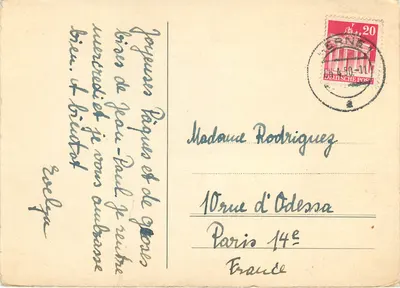 Joyeuses Pâques et de grosses
bises de Jean-Paul je rentre
mercredi et je vous embrasse
bien. A bientot
Evelyn
20
DEUTSCHE POST
Madame Rodriguez
10 rue d'Odessa
Paris 14e
France